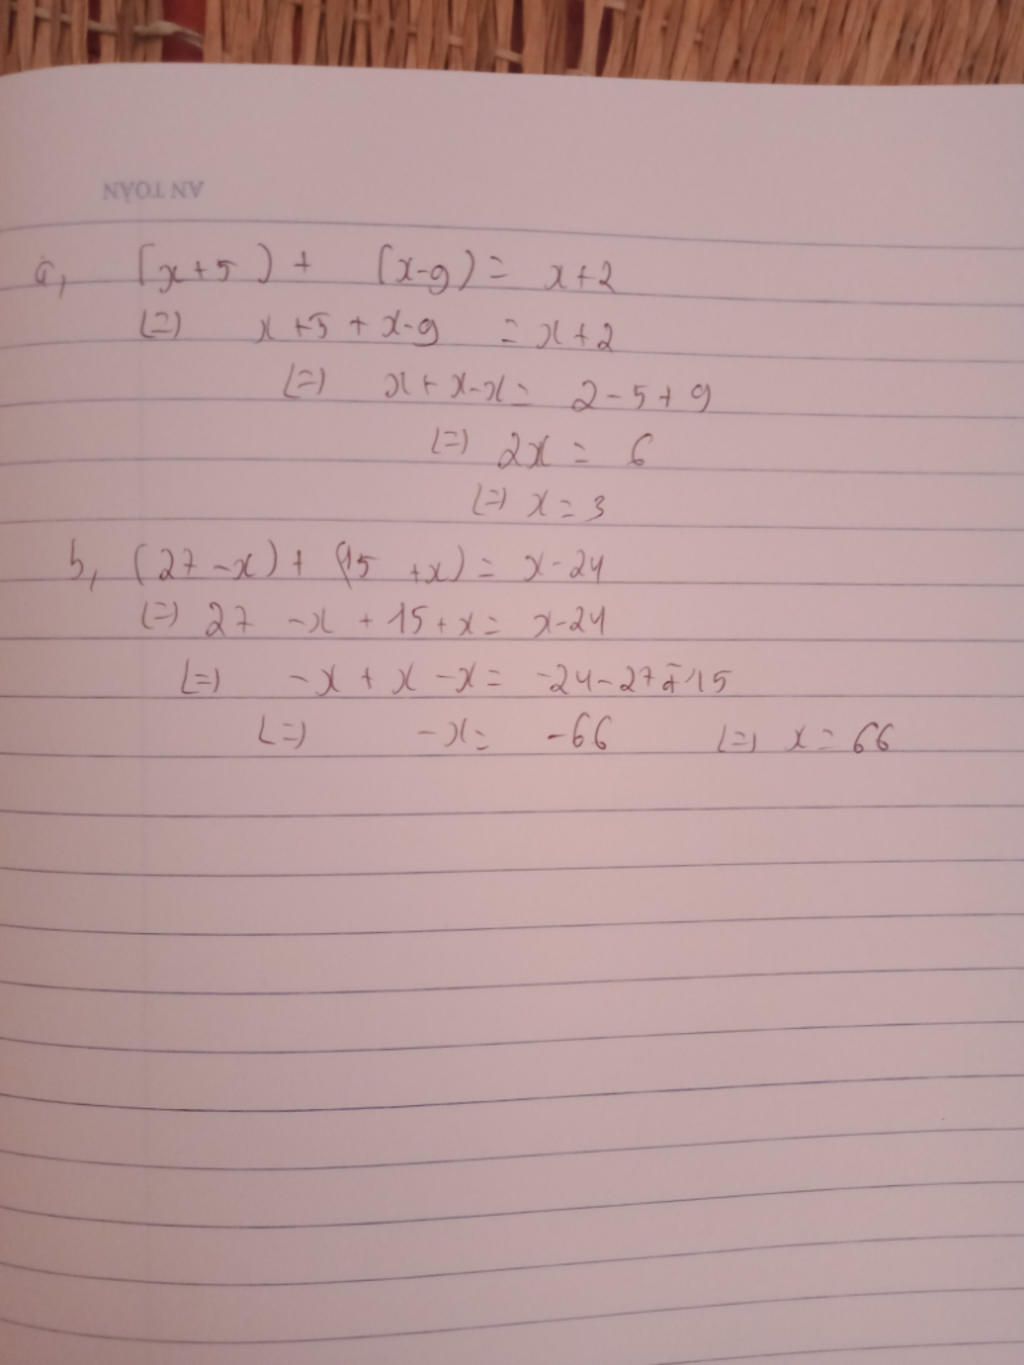 AN TOÀN
a, (x+5) + (x-9) = x+2
(=) x+5+x-9 = x+2
(=) x+x-x = 2-5+9
(=) 2x = 6
(=) x = 3
b, (27-x) + (15+x) = x-24
(=) 27 -x + 15+x = x-24
(=) -x + x -x = -24-27-15
(=) -x = -66 (=) x = 66